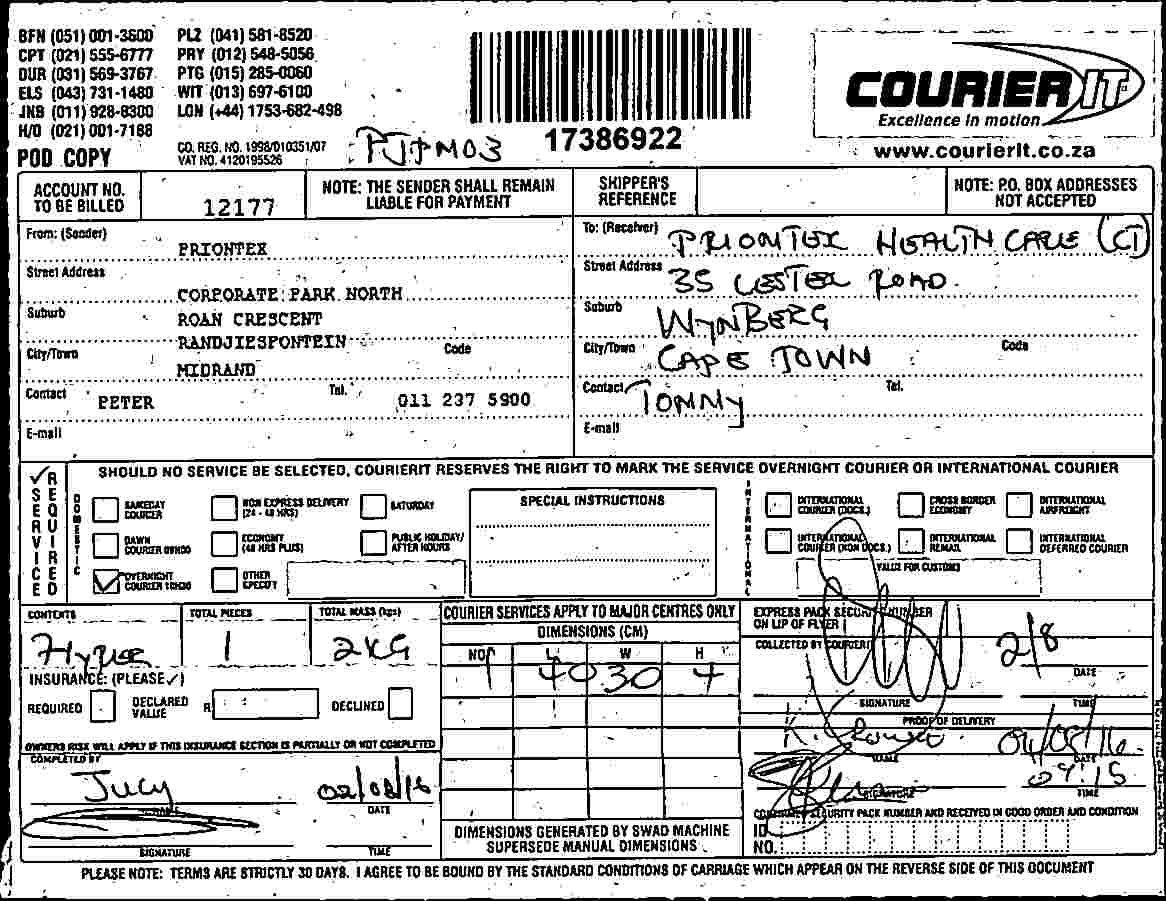 BFN (051) 001-3600 PLZ (041) 581-8520
CPT (021) 555-6777 PRY (012) 548-5056
DUR (031) 569-3767 PTG (015) 285-0060
ELS (043) 731-1480 WIT (013) 697-6100
JNB (011) 928-8300 LON (+44) 1753-682-498
H/O (021) 001-7188
POD COPY
CO. REG. NO. 1998/010351/07
VAT NO. 4120195526
PJPM03
17386922
COURIER IT
Excellence in motion
www.courierit.co.za
ACCOUNT NO. TO BE BILLED 12177
NOTE: THE SENDER SHALL REMAIN LIABLE FOR PAYMENT
SHIPPER'S REFERENCE
NOTE: P.O. BOX ADDRESSES NOT ACCEPTED
From: (Sender) PRIONTEX
Street Address CORPORATE PARK NORTH
Suburb ROAN CRESCENT
RANDJIESFONTEIN
City/Town MIDRAND Code
Contact PETER Tel. 011 237 5900
E-mail
To: (Receiver) PRIONTEX HEALTH CARE (CT)
Street Address 35 LESTER ROAD
Suburb WYNBERG
City/Town CAPE TOWN Code
Contact TOMMY Tel.
E-mail
SERVICE REQUIRED
SHOULD NO SERVICE BE SELECTED, COURIERIT RESERVES THE RIGHT TO MARK THE SERVICE OVERNIGHT COURIER OR INTERNATIONAL COURIER
DOMESTIC
SAMEDAY COURIER
NON EXPRESS DELIVERY (24 - 48 HRS)
SATURDAY
DAWN COURIER 09H00
ECONOMY (48 HRS PLUS)
PUBLIC HOLIDAY/ AFTER HOURS
OVERNIGHT COURIER 10H30
OTHER SPECIFY
SPECIAL INSTRUCTIONS
INTERNATIONAL
INTERNATIONAL COURIER (DOCS.)
CROSS BORDER ECONOMY
INTERNATIONAL AIRFREIGHT
INTERNATIONAL COURIER (NON DOCS.)
INTERNATIONAL REMAIL
INTERNATIONAL DEFERRED COURIER
VALUE FOR CUSTOMS
CONTENTS
TOTAL PIECES 1
TOTAL MASS (kgs) 2KG
INSURANCE: (PLEASE ✓)
REQUIRED DECLARED VALUE R DECLINED
OWNERS RISK WILL APPLY IF THIS INSURANCE SECTION IS PARTIALLY OR NOT COMPLETED
COMPLETED BY
Jucy 02/08/16
NAME DATE
SIGNATURE TIME
COURIER SERVICES APPLY TO MAJOR CENTRES ONLY
DIMENSIONS (CM)
NO L W H
1 40 30 4
DIMENSIONS GENERATED BY SWAD MACHINE SUPERSEDE MANUAL DIMENSIONS
EXPRESS PACK SECURITY NUMBER ON LIP OF FLYER
COLLECTED BY COURIERIT
2/8
DATE
SIGNATURE TIME
PROOF OF DELIVERY
K. 04/08/16
NAME DATE
09:15
SIGNATURE TIME
SECURITY PACK NUMBER AND RECEIVED IN GOOD ORDER AND CONDITION
ID NO.
PLEASE NOTE: TERMS ARE STRICTLY 30 DAYS. I AGREE TO BE BOUND BY THE STANDARD CONDITIONS OF CARRIAGE WHICH APPEAR ON THE REVERSE SIDE OF THIS DOCUMENT